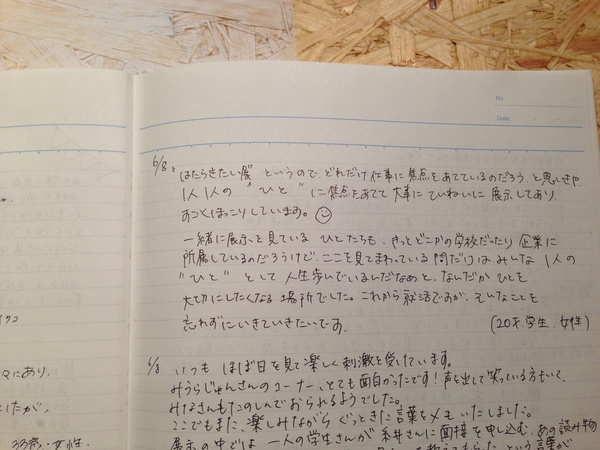 No.
Date
6/8 "はたらきたい展" というので、どれだけ仕事に焦点をあてているのだろう、と思いきや
1人1人の "ひと" に焦点をあてて大事にていねいに展示してあり
すごくほっこりしています。
一緒に展示を見ているひとたちも、きっとどこかの学校だったり企業に
所属しているのだろうけど、ここを見てまわっている間だけは、みんな1人の
"ひと" として人生歩いでいるんだなぁと、なんだかひとを
大切にしたくなる場所でした。これから就活ですが、そんなことを
忘れずにいきていきたいです。
(20才.学生.女性)
6/8 いつもほぼ日を見て楽しく刺激を受けています。
みうらじゅんさんのコーナー、とても面白かったです!声を出して笑っている方もいて、
みなさんもたのしんでおられるようでした。
ここでもまた、楽しみながらぐっときた言葉をメモいたしました。
展示の中では一人の学生さんが糸井さんに面接を申し込む、あの読み物
という言葉が
々にあり、
したが、
33歳・女性